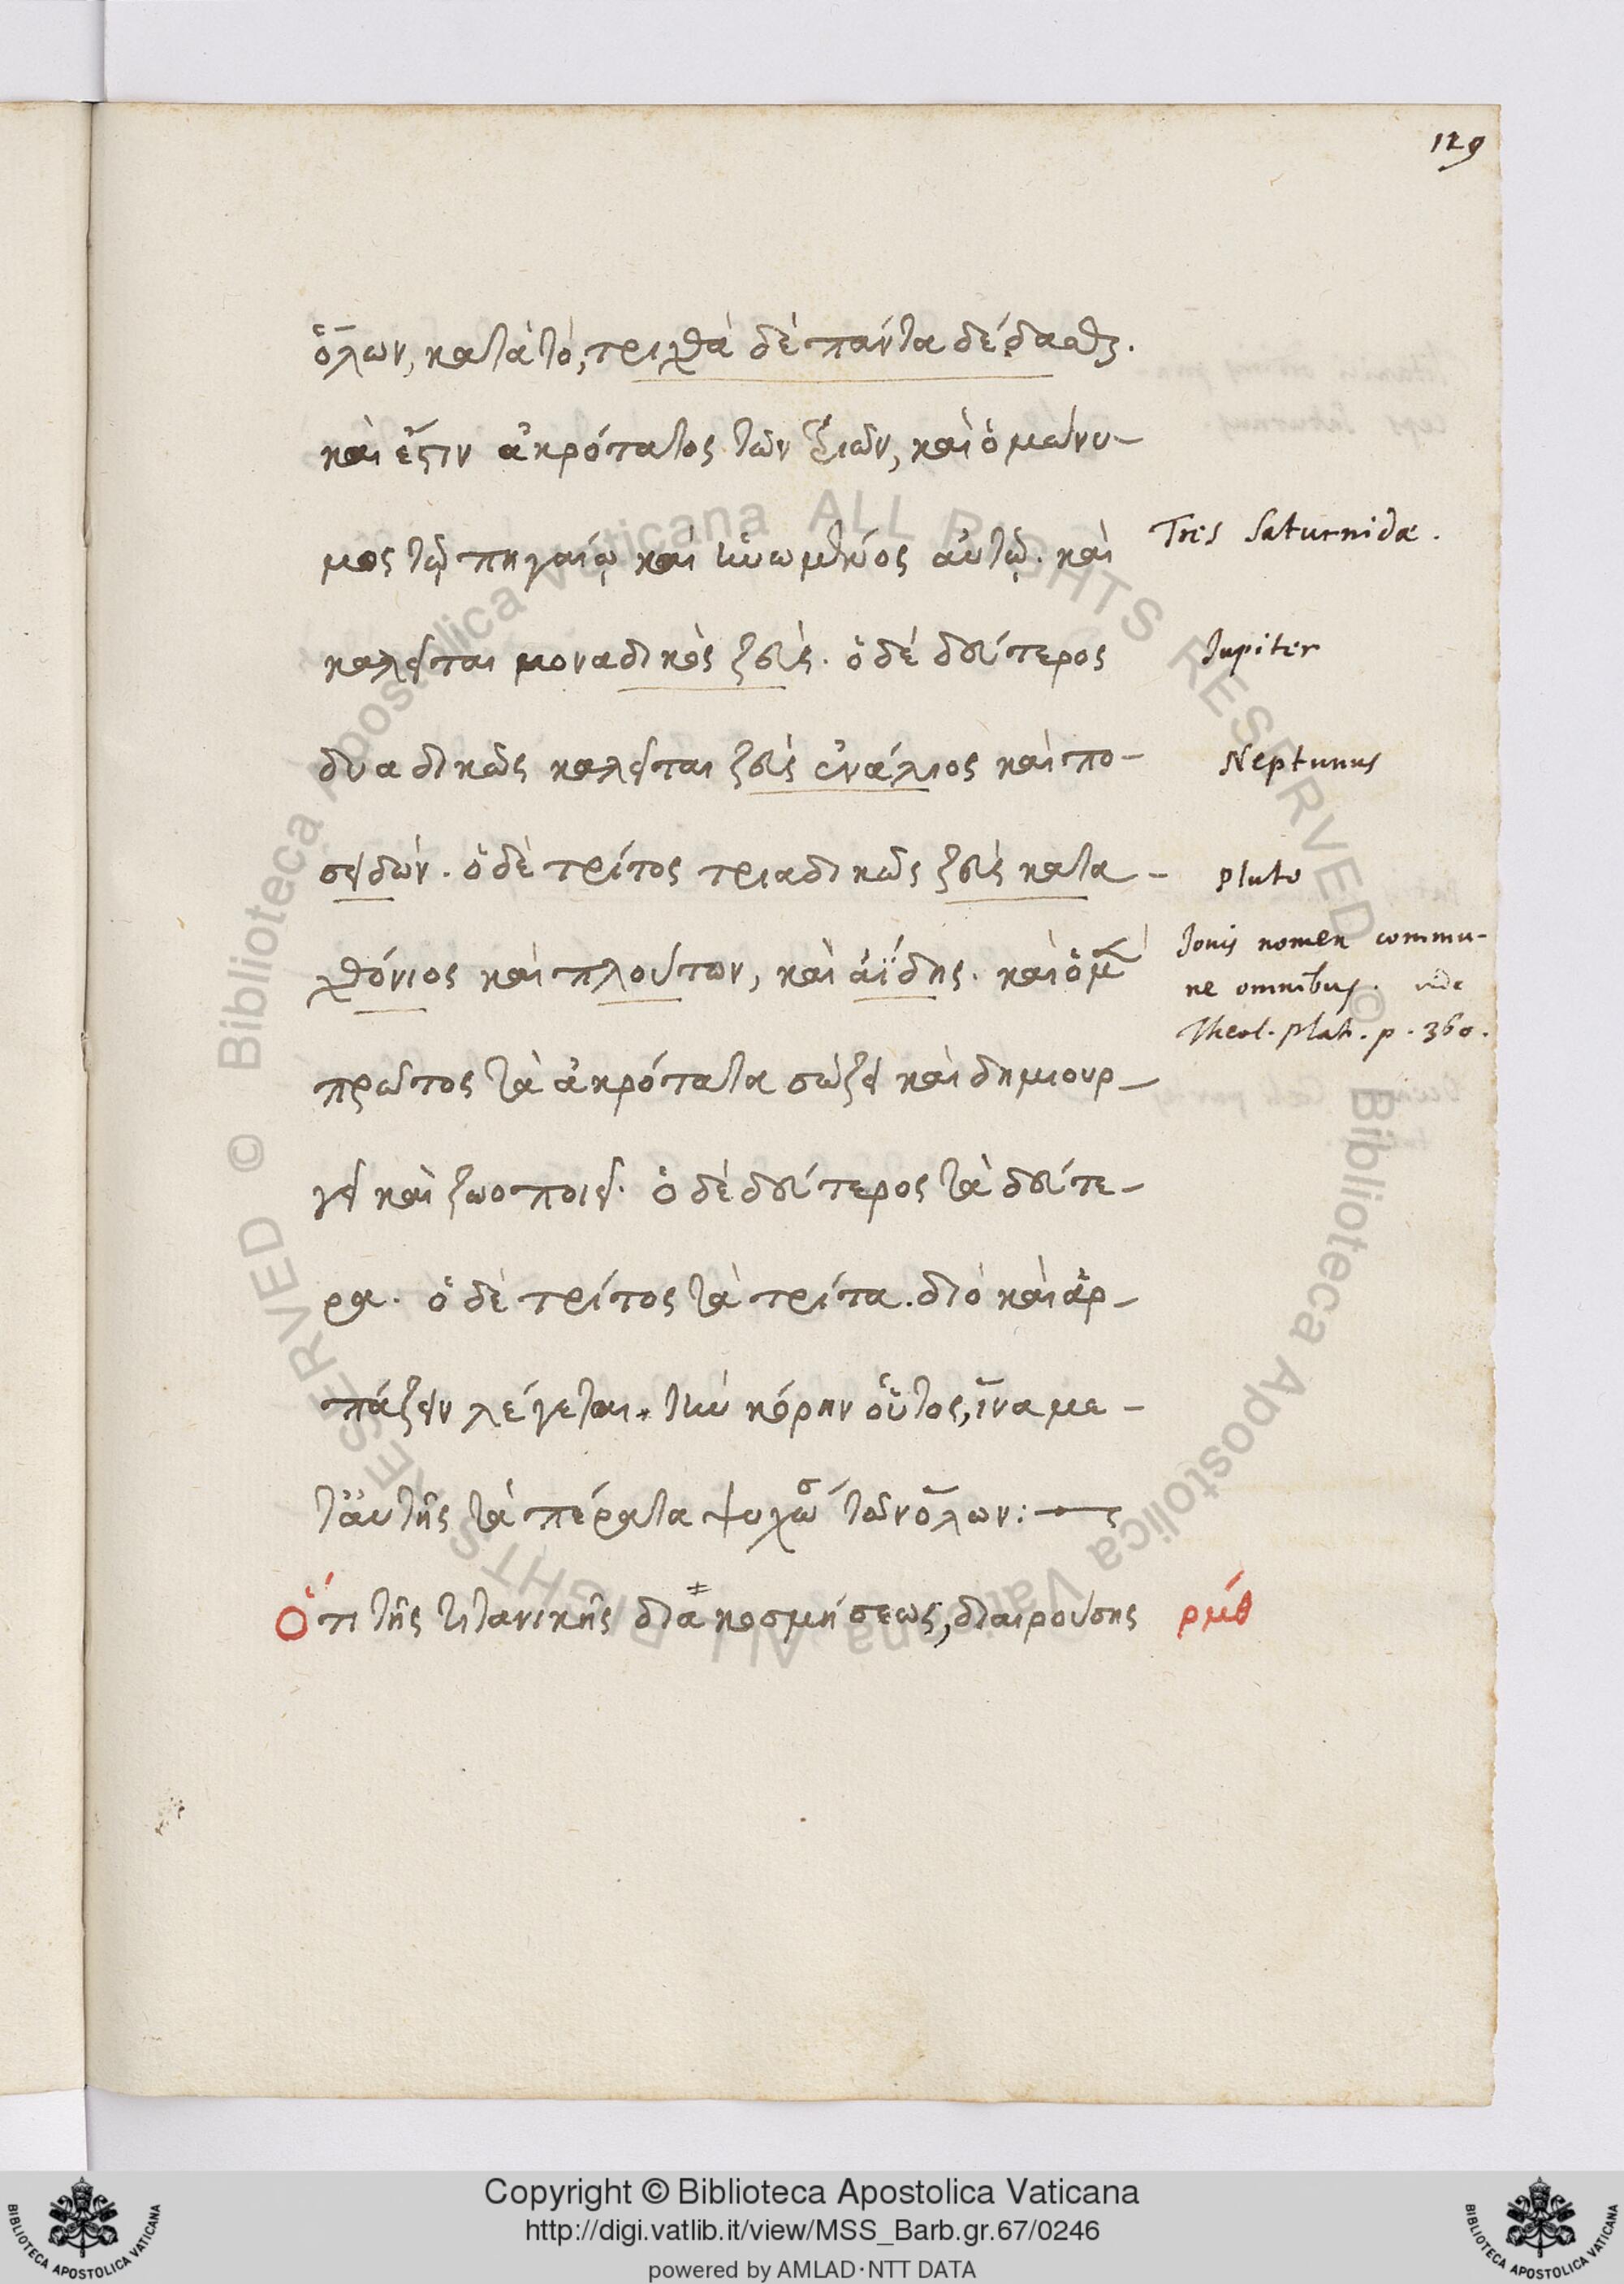 129
ὅλων, κατὰ τὸ, τριχθὰ δὲ πάντα δέδασθαι.
καὶ ἔστιν ἀκρότατος τῶν τριῶν, καὶ ὁμώνυ-
μος τῷ πηγαίῳ καὶ ἡνωμένος αὐτῷ. καὶ
Tres Saturnidæ.
καλεῖται μοναδικὸς ζεύς. ὁ δὲ δεύτερος
Jupiter
δυαδικῶς καλεῖται ζεὺς ἐνάλιος καὶ πο-
Neptunus
σειδών. ὁ δὲ τρίτος τριαδικῶς ζεὺς κατα-
Pluto
χθόνιος καὶ πλούτων, καὶ ἀΐδης. καὶ ὁ μὲν
Jouis nomen commu-
ne omnibus. vide
Theol. Plat. p. 360.
πρῶτος τὰ ἀκρότατα σώζει καὶ δημιουρ-
γεῖ καὶ ζωοποιεῖ. ὁ δὲ δεύτερος τὰ δεύτε-
ρα. ὁ δὲ τρίτος τὰ τρίτα. διὸ καὶ ἁρ-
πάζειν λέγεται. τὴν κόρην οὗτος, ἵνα με-
τ' αὐτῆς τὰ πέρατα ψυχώσῃ τῶν ὅλων:
Ὅτι τῆς τιτανικῆς διακοσμήσεως, διαιρούσης
ρμθ
Copyright © Biblioteca Apostolica Vaticana
http://digi.vatlib.it/view/MSS_Barb.gr.67/0246
powered by AMLAD·NTT DATA